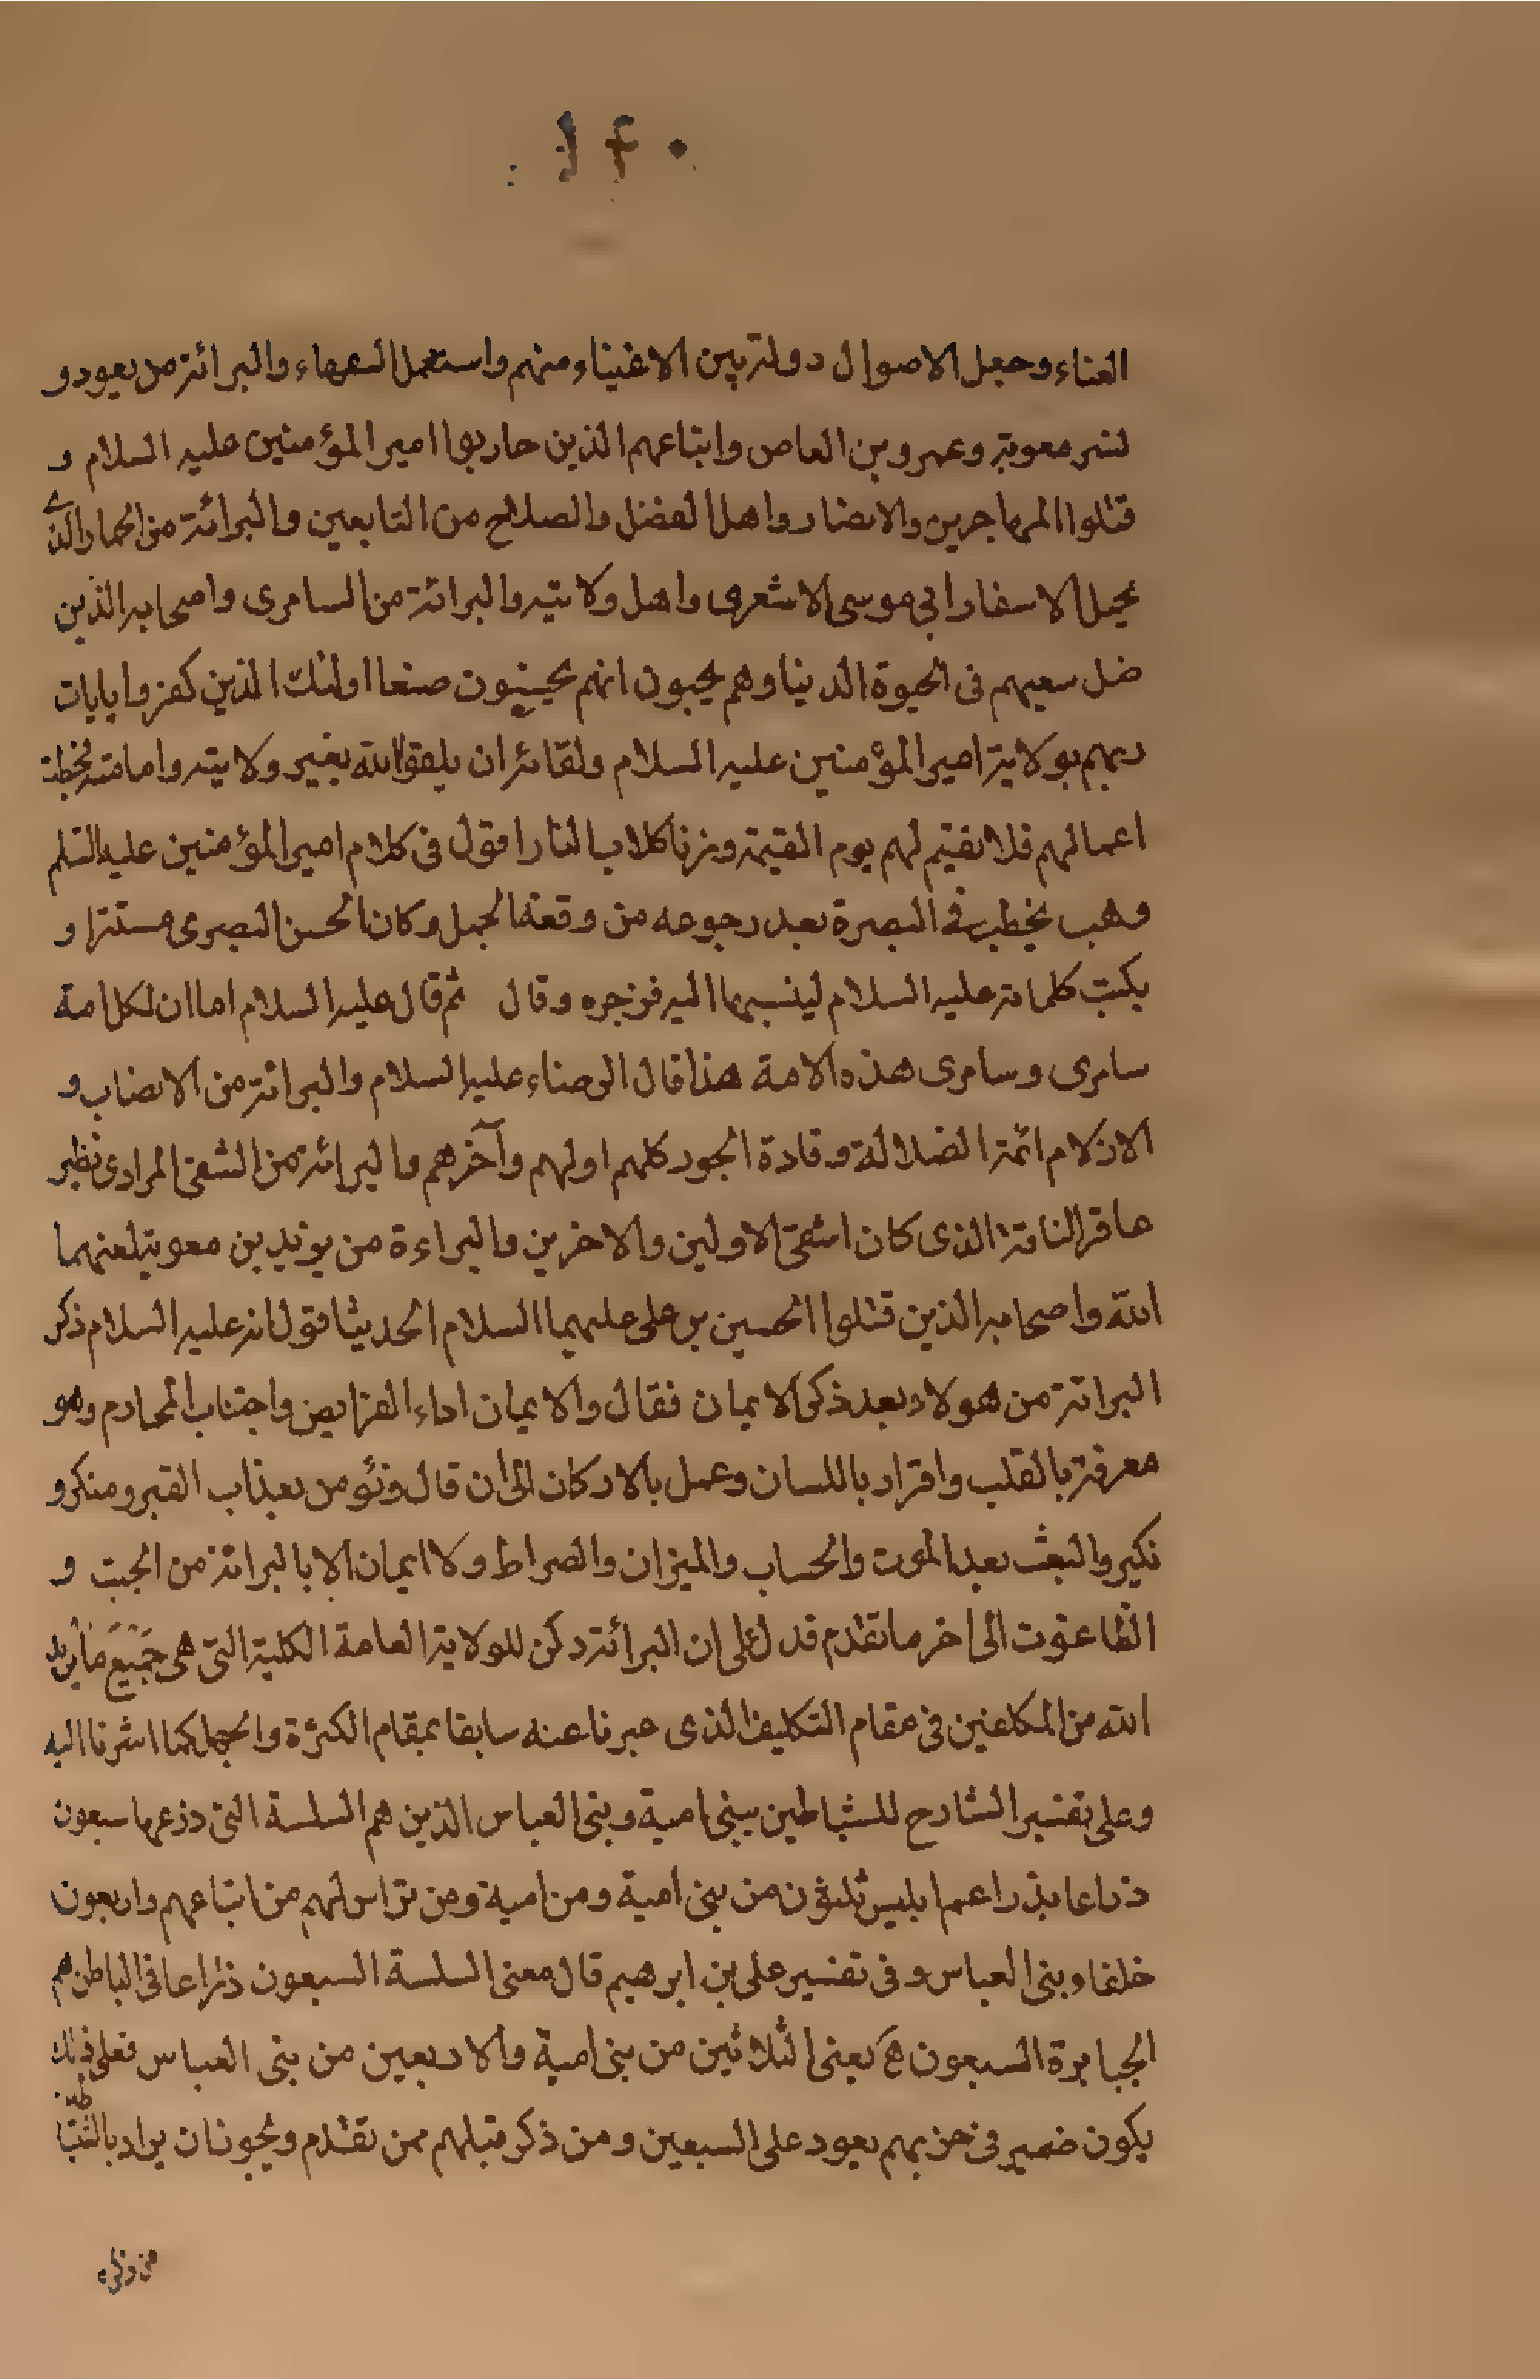 ١٤٠
الغناء وجعل الاموال دولة بين الاغنياء منهم واستعمل السفهاء والبرائة من يعود و
لشر معوية وعمرو بن العاص واتباعهم الذين حاربوا امير المؤمنين عليه السلام و
قتلوا المهاجرين والانصار واهل الفضل والصلاح من التابعين والبرائة من الحمار الذى
يحمل الاسفار ابى موسى الاشعرى واهل ولايته والبرائة من السامرى واصحابه الذين
ضل سعيهم فى الحيوة الدنيا وهم يحبون انهم يحسنون صنعا اولئك الذين كفروا بايات
ربهم بولاية امير المؤمنين عليه السلام ولقائه ان يلقوا الله بغير ولايته وامامته فحبطت
اعمالهم فلا نقيم لهم يوم القيمة وزنا كلاب النار اقول فى كلام امير المؤمنين عليه السلم
وهب يخطب فى البصرة بعد رجوعه من وقعة الجمل وكان الحسن البصرى مستترا و
يكتب كلماته عليه السلام لينسبها اليه فزجره وقال ثم قال عليه السلام اما ان لكل امة
سامرى وسامرى هذه الامة هذا قال الرضاء عليه السلام والبرائة من الانصاب و
الازلام ائمة الضلالة وقادة الجور كلهم اولهم وآخرهم والبرائة من الشقى المرادى نظير
عاقر الناقة الذى كان اشقى الاولين والاخرين والبراءة من يزيد بن معوية لعنهما
الله واصحابه الذين قتلوا الحسين بن على عليهما السلام الحديث اقول انه عليه السلام ذكر
البرائة من هولاء بعد ذكر الايمان فقال والايمان اداء الفرايض واجتناب المحارم وهو
معرفة بالقلب واقرار باللسان وعمل بالاركان الى ان قال ونؤمن بعذاب القبر ومنكر و
نكير والبعث بعد الموت والحساب والميزان والصراط ولا ايمان الا بالبرائة من الجبت و
الطاغوت الى اخر ما تقدم فدل على ان البرائة ركن للولاية العامة الكلية التى هى جميع ما يريد
الله من المكلفين فى مقام التكليف الذى عبرنا عنه سابقا بمقام الكثرة والجهل كما اشرنا اليه
وعلى تفسير الشارح للشياطين ببنى امية وبنى العباس الذين هم السلسة التى ذرعها سبعون
ذراعا بذراعهم ابليس ثلثون من بنى امية ومن امية ومن تراس لهم من اتباعهم واربعون
خلفاء بنى العباس وفى تفسير على بن ابرهيم قال معنى السلسة السبعون ذراعا فى الباطن هم
الجبابرة السبعون يعنى الثلاثين من بنى امية والاربعين من بنى العباس فعلى ذلك
يكون ضمير فى حزبهم يعود على السبعين ومن ذكر قبلهم ممن تقدم ويجوز ان يراد بالشياطين
من ذكره